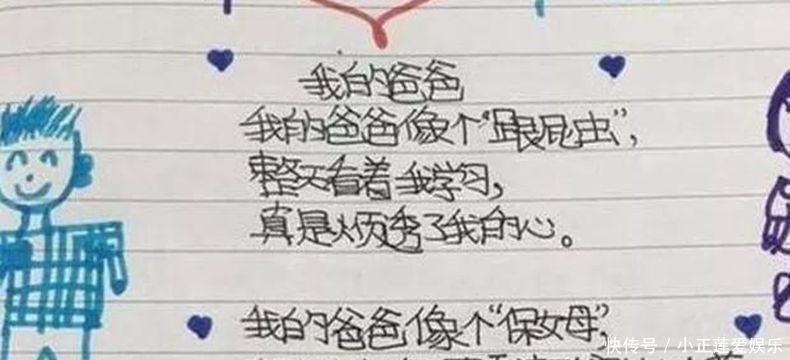 我的爸爸
我的爸爸像个“跟屁虫”，
整天看着我学习，
真是烦透了我的心。
我的爸爸像个“保女母”，
快传号 / 小正莲爱娱乐